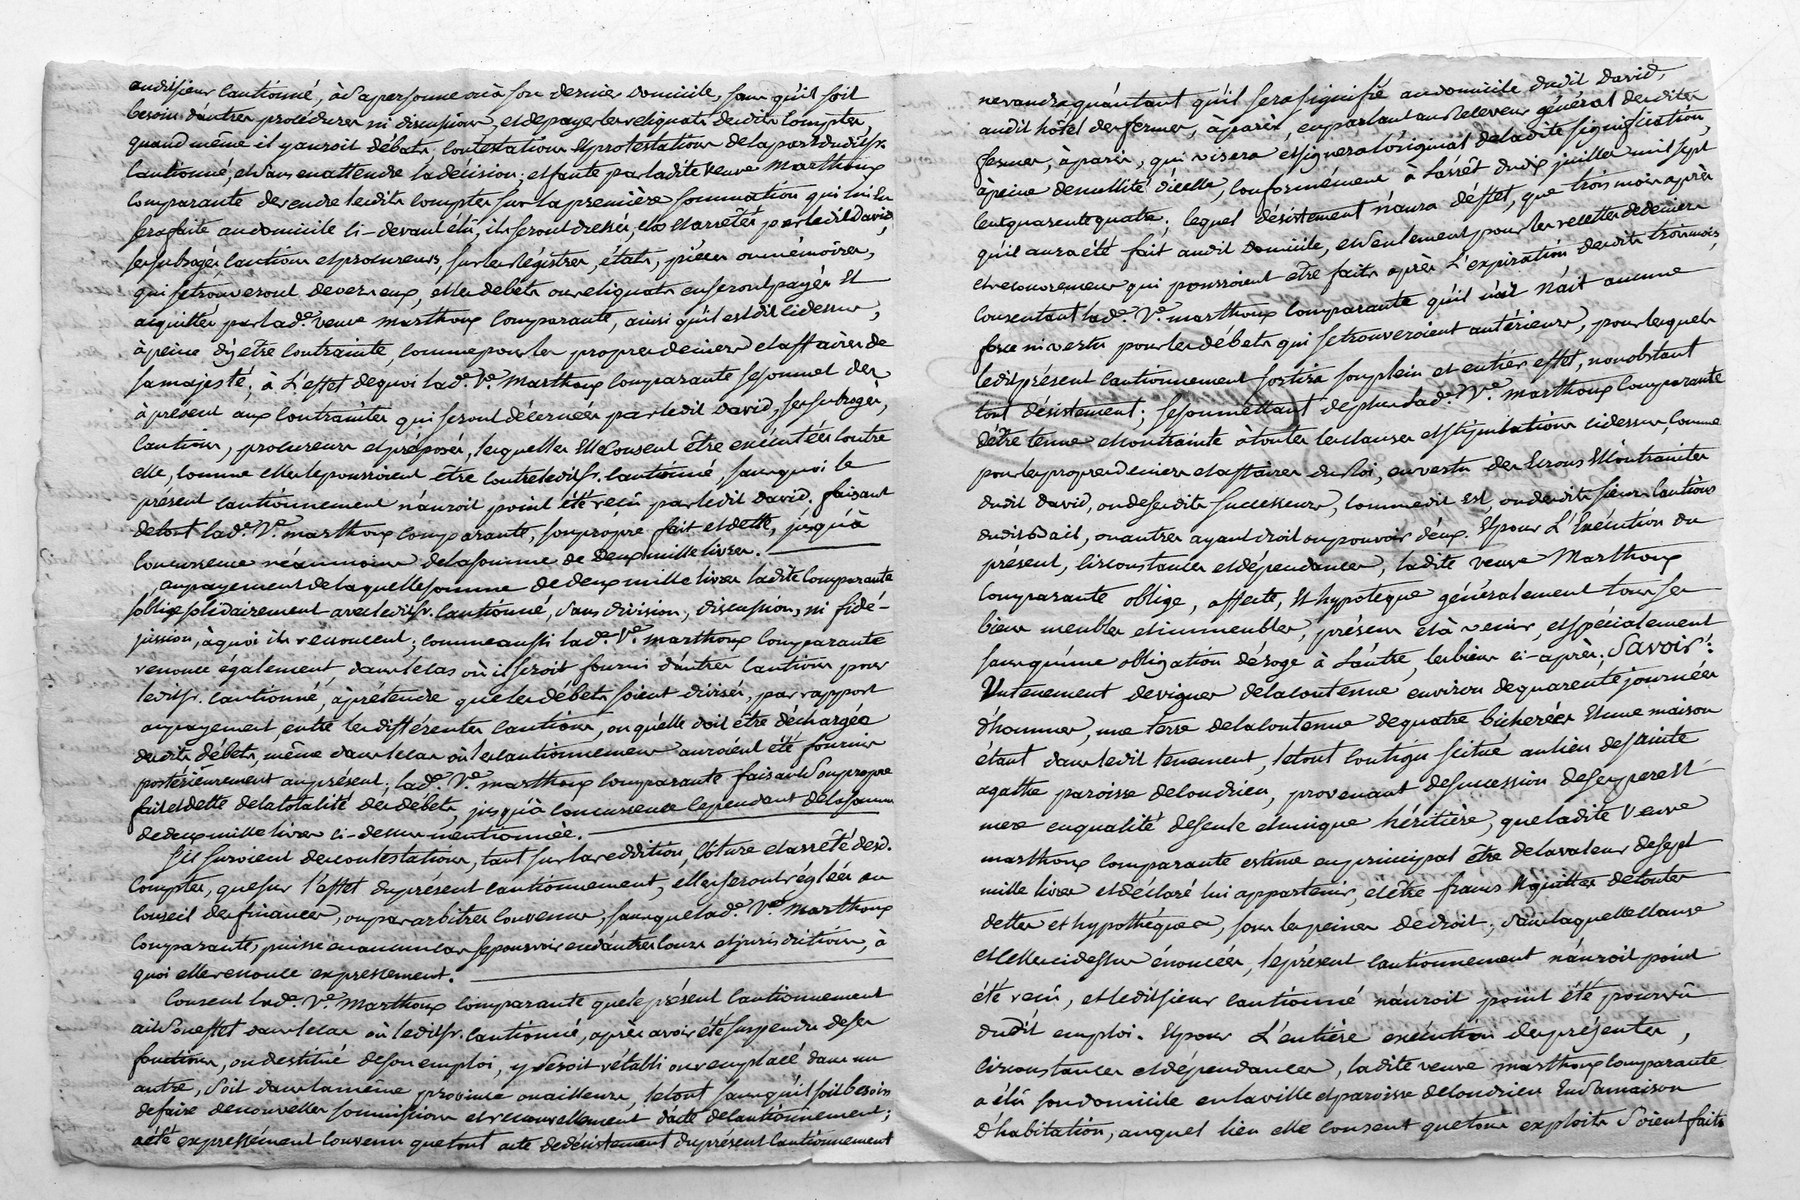 audit sieur cautionné, à sa personne ou à son dernier domicile, sans qu'il soit
besoin d'autres procédures ni discussions, et de payer les reliquats desdits comptes
quand même il y auroit débats, contestations et protestations de la part dudit sr.
cautionné, et sans en attendre la décision; et faute par ladite veuve Marthoux
comparante de rendre lesdits comptes sur la première sommation qui lui en
sera faite au domicile ci-devant élu, ils seront dressés, clos et arrêtés par ledit David,
ses subrogés, cautions et procureurs, sur les régistres, états, pièces ou mémoires,
qui se trouveront devers eux, et les debets ou reliquats en seront payés et
acquittés par lade. veuve marthoux comparante, ainsi qu'il est dit cidessus,
à peine d'y être contrainte, comme pour les propres deniers et affaires de
sa majesté; à l'effet de quoi lade. Ve. Marthoux comparante se soumet dès
à présent aux contraintes qui seront décernées par ledit David, ses subrogés,
cautions, procureurs et préposés, lesquelles elle consent être exécutées contre
elle, comme elles le pourroient être contre ledit sr. cautionné, sans quoi le
présent cautionnement n'auroit point été reçu par ledit David. faisant
detout lade. Ve. marthoux comparante, son propre fait et dette, jusqu'à
concurrence néanmoins de la somme de Deux mille livres.
au payement de laquelle somme de deux mille livres ladite comparante
s'oblige solidairement avec ledit sr. cautionné, sans division, discussion, ni fidé-
jussion, à quoi ils renoncent; comme aussi lade. Ve. marthoux comparante
renonce également, dans le cas où il seroit fourni d'autres cautions pour
ledit sr. cautionné, à prétendre que les débets soient divisés, par rapport
au payement, entre les différentes cautions, ou qu'elle doit être déchargée
desdits débets, même dans le cas où les cautionnemens auroient été fournis
postérieurement au présent; lade. Ve. marthoux comparante faisant son propre
fait et dette de la totalité des debets, jusqu'à concurrence cependant de la somme
de deux mille livres ci-dessus mentionnée.
S'il survient des contestations, tant sur la reddition, clôture et arrêté desd.
comptes, que sur l'effet du présent cautionnement, elles seront réglées au
conseil des finances, ou par arbitres convenus, sans que lade. Ve. Marthoux
comparante, puisse en aucun cas se pourvoir en d'autres cours et jurisdictions, à
quoi elle renonce expressement.
Consent lade. Ve. Marthoux comparante que le présent cautionnement
ait son effet dans le cas où ledit sr. cautionné, après avoir été suspendu de ses
fonctions, ou destitué de son emploi, y seroit rétabli ou remplacé dans un
autre, soit dans la même province ou ailleurs, le tout sans qu'il soit besoin
de faire de nouvelles soumissions et renouvellement d'acte de cautionnement;
a été expressément convenu que tout acte de désistement du présent cautionnement
ne vaudra qu'autant qu'il sera signifié au domicile dudit David,
audit hôtel des fermes, à paris, en parlant au Receveur général desdites
fermes, à paris, qui visera et signera l'original de la dite signification,
à peine de nullité d'icelle, conformément à l'arrêt du dix juillet mil sept
cent quarante quatre; lequel désistement n'aura d'effet, que trois mois après
qu'il aura été fait audit domicile, et seulement pour les recettes de deniers
et recouvremens qui pourroient être faits après l'expiration desdits trois mois,
consentant lade. Ve. marthoux comparante qu'il n'ait aucune
force ni vertu pour les débets qui se trouveroient antérieurs, pour lesquels
ledit présent cautionnement sortira son plein et entier effet, nonobstant
tout désistement; se soumettant de plus lade. Ve. marthoux comparante
d'être tenue et contrainte à toutes les clauses et stipulations cidessus, comme
pour les propres deniers et affaires du Roi, en vertu des écrous et contraintes
dudit David, ou de ses dits successeurs, comme dit est, ou desdits sieurs cautions
dudit Bail, ou autres ayant droit ou pouvoir d'eux. Et pour l'Exécution du
présent, circonstances et dépendances, ladite veuve Marthoux
comparante oblige, affecte, et hypoteque généralement tous ses
biens meubles et immeubles, présens et à venir, et spécialement
sans qu'une obligation déroge à l'autre, les biens ci-après. Savoir:
Un tenement de vignes de la contenue environ de quarente journées
d'hommes, une terre de la contenue de quatre bicherées et une maison
étant dans ledit tenement, le tout contigu scitué au lieu de sainte
agathe paroisse de condrieu, provenant de sucession de ses pere et
mere en qualité de seule et unique héritière, que ladite veuve
marthoux comparante estime au principal être de la valeur de sept
mille livres et déclaré lui appartenir, et être francs et quittes de toutes
dettes et hypothéques, sous les peines de droit; sans laquelle clause
et celles cidessus énoncées, le présent cautionnement n'auroit point
été reçu, et ledit sieur cautionné n'auroit point été pourvû
dudit emploi. Et pour l'entière exécution des présentes,
circonstances et dépendances, ladite veuve marthoux comparante
a élû son domicile en la ville et paroisse de condrieu en sa maison
d'habitation, auquel lieu elle consent que tous exploits soient faits